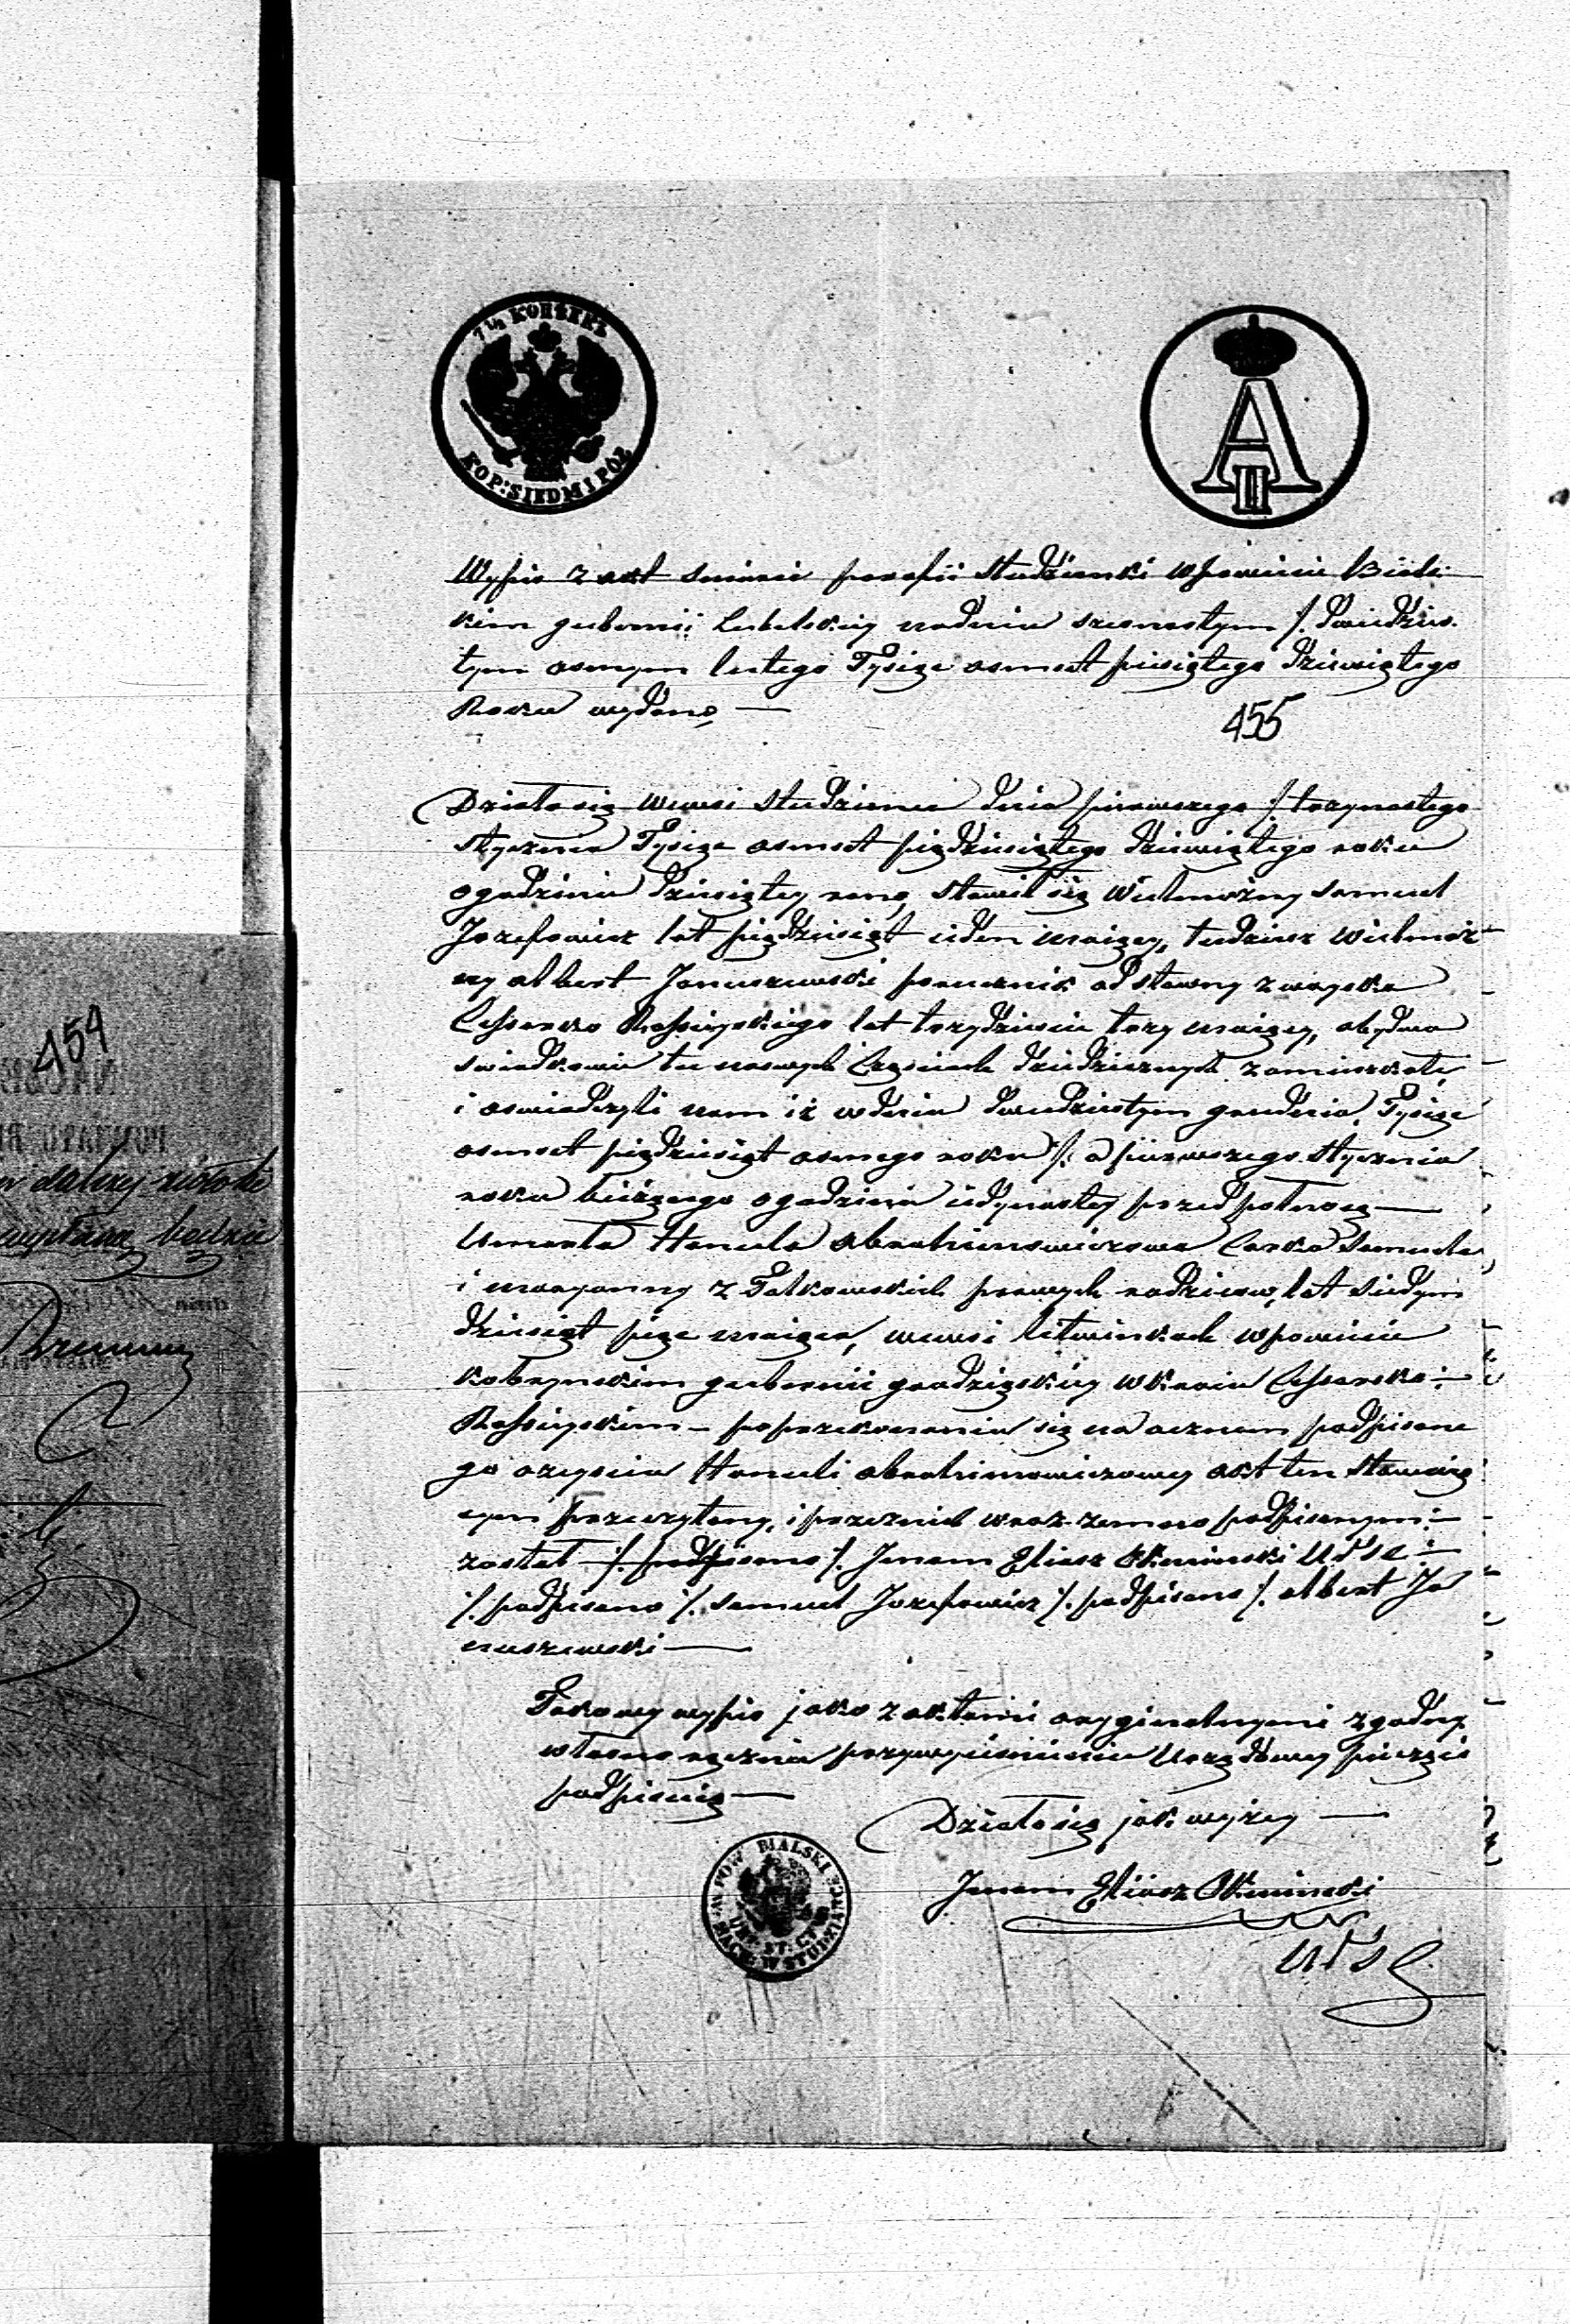 454
w dalszy
wypłaconą będzie
7 1/2 КОПѢЕКЪ
KOP: SIEDM I PÓŁ
A II
Wypis z akt smierci parafii Studzianki w Powiecie Bials:
kim gubernii Lubelskiey na dniu szesnastym /. dwudzies:
tym osmym lutego Tysiąc osmset pięsiątego dziewiątego
Roku wydano —
455
Działo się we wsi Studziance dnia pierwszego /. trzynastego
stycznia Tysiąc osmset piędziesiątego dziewiątego roku
o godzinie dziesiątey rano, Stawił się Wielmożny Samuel
Jozefowicz lat piędziesiąt ieden maiący, tudziesz Wielmoż
ny albert Januszewski porucznik od stawny z woyska
Cessarsko Rossiyskiego lat trzydziescie trzy maiący, obydwa
swiadkowie tu na swych Częsciach dziedzicznych zamieszkali,
i oswiadczyli nam iż w dniu dwudziestym grudnia Tysiąc
osmset piędziesiąt osmego roku /. a pierwszego Stycznia
roku bieżącego o godzinie iedynastey przed połnocą —
Umarła Hancela abrahimowiczowa Corka Samuela
i maryanny z Falkowskich prawych rodzicow, lat siedym
dziesiąt pięc maiąca, we wsi litwinkach w powiecie
kobrynskim gubernii grodzięskiey w kraiu Cessarsko:
Rossiyskim — po przekonaniu się na ocznem podpisane
go o zeysciu Hanceli abrahimowiczowey akt ten stawaią
cym przeczytany, i przeznich wraz zemno podpisanym:
zostal /. podpisano /. Jmam Eliasz Okminski U S C
/. podpisano /. Samuel Jozefowicz /. podpisano /. albert Ja
nuszewski —
Takowy wypis jako z aktami oryginalnymi zgodny
własno ręcznie przy wyciśnieniu Urzędowey pieczęci
podpisuię —
Działo się jak wyżey —
W POW: BIALSKI
URZ: ST: CY
W STUDZIANCE
Jmam Eliasz Okminski
U S C